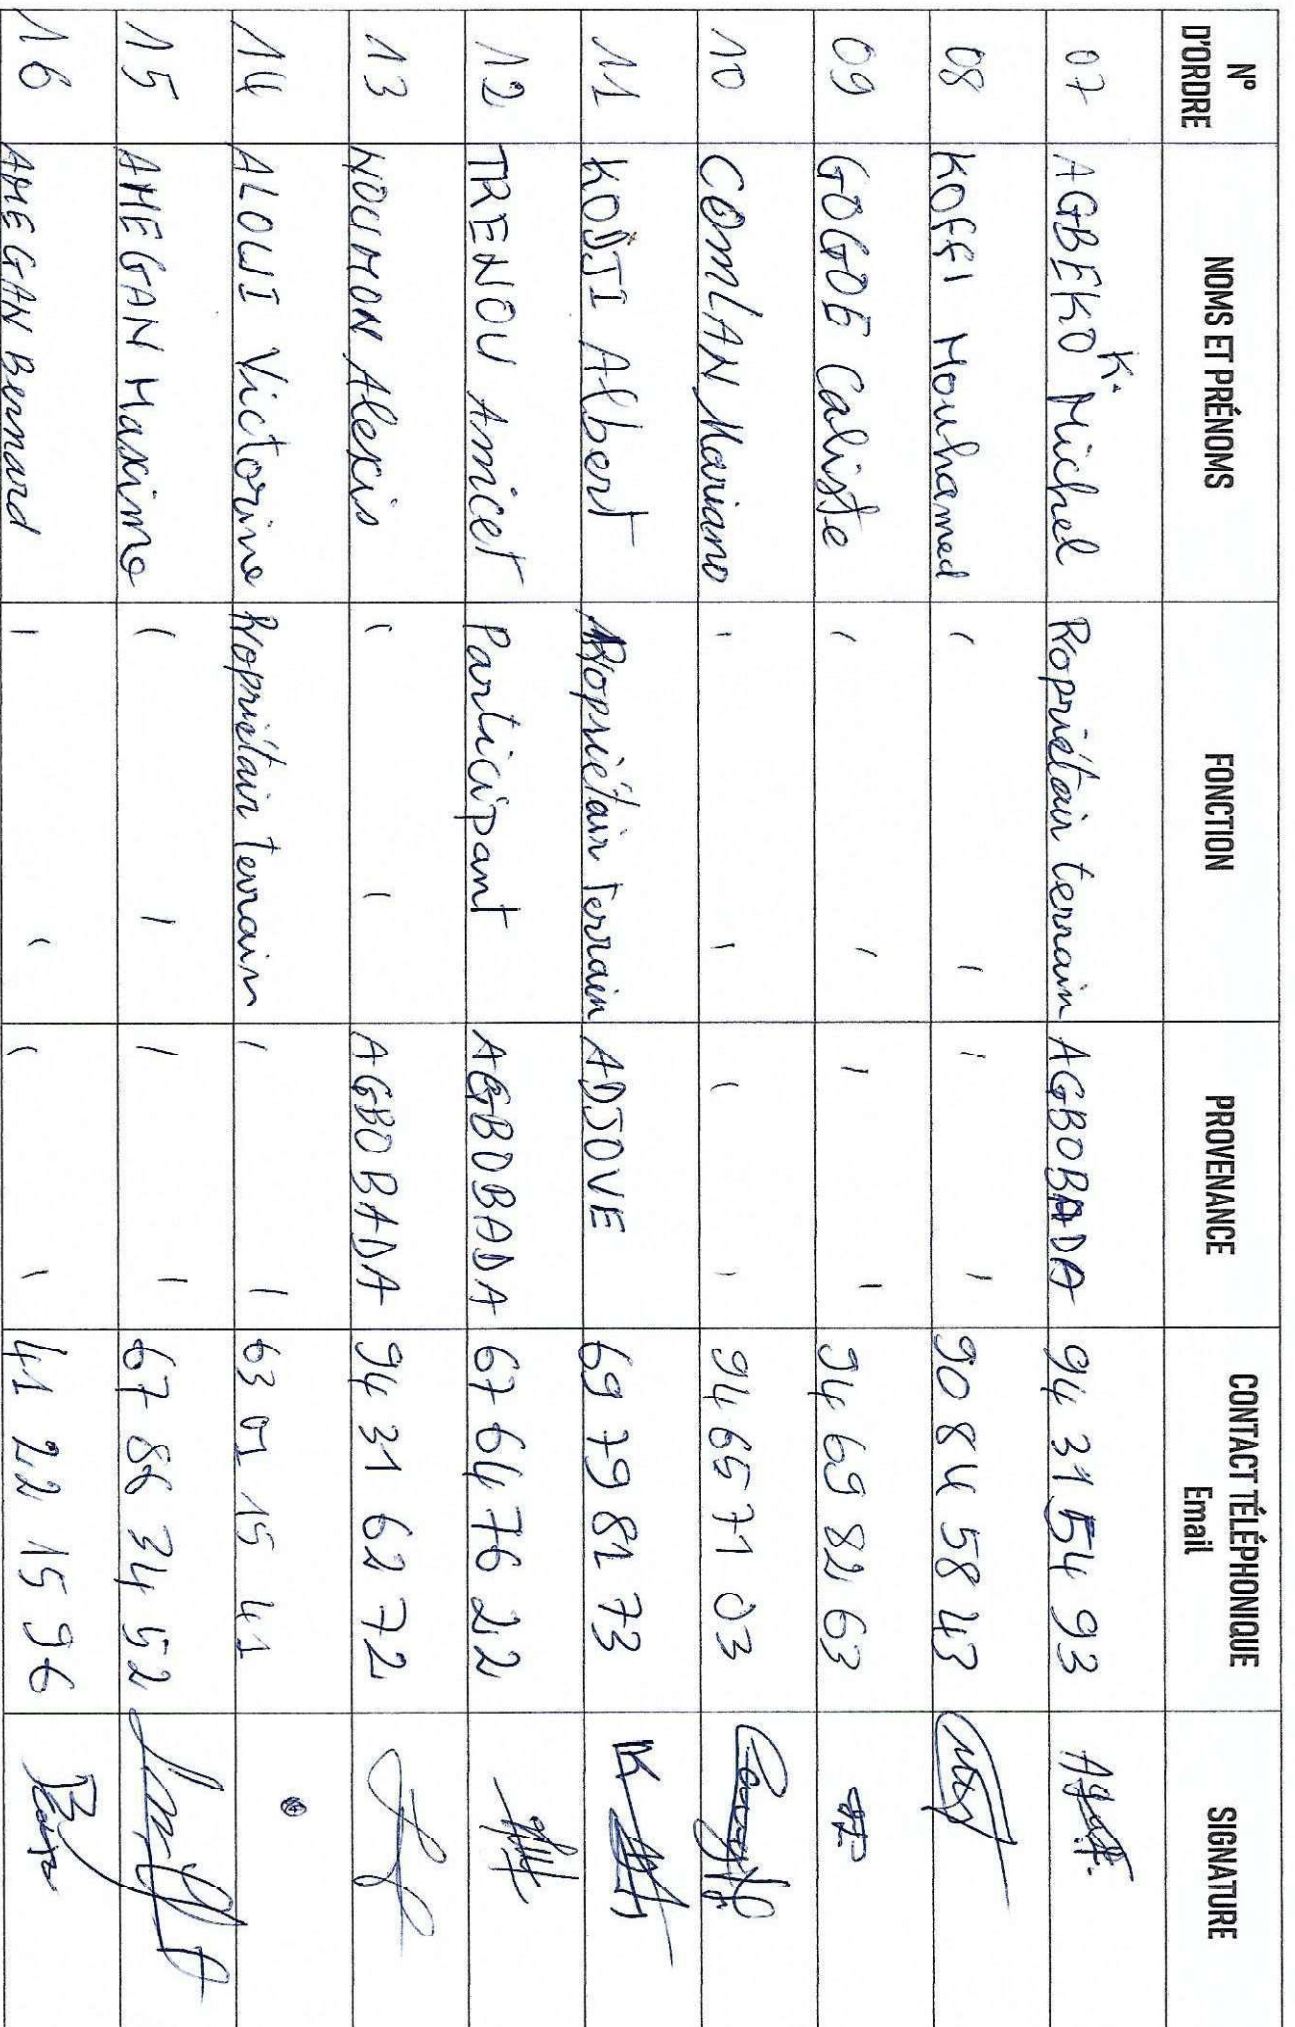 N° D'ORDRE NOMS ET PRÉNOMS FONCTION PROVENANCE CONTACT TÉLÉPHONIQUE Email SIGNATURE
07 AGBEKO K. Michel Ropriétair terrain AGBOBADA 94 31 54 93
08 KOFFI Mouhamed 〃 〃 90 84 58 43
09 GOGOE Caliste 〃 〃 94 69 82 63
10 COMLAN Mariano 〃 〃 94 65 71 03
11 KODJI Albert Propriétair Terrain ADJOVE 69 79 81 73
12 TRENOU Amicet Participant AGBOBADA 67 64 76 22
13 NOUMON Alexis 〃 AGBOBADA 94 31 62 72
14 ALOWI Victorine Ropriétair terrain 〃 63 01 15 41
15 AMEGAN Maxime 〃 〃 67 86 34 52
16 AMEGAN Bernard 〃 〃 41 22 15 96